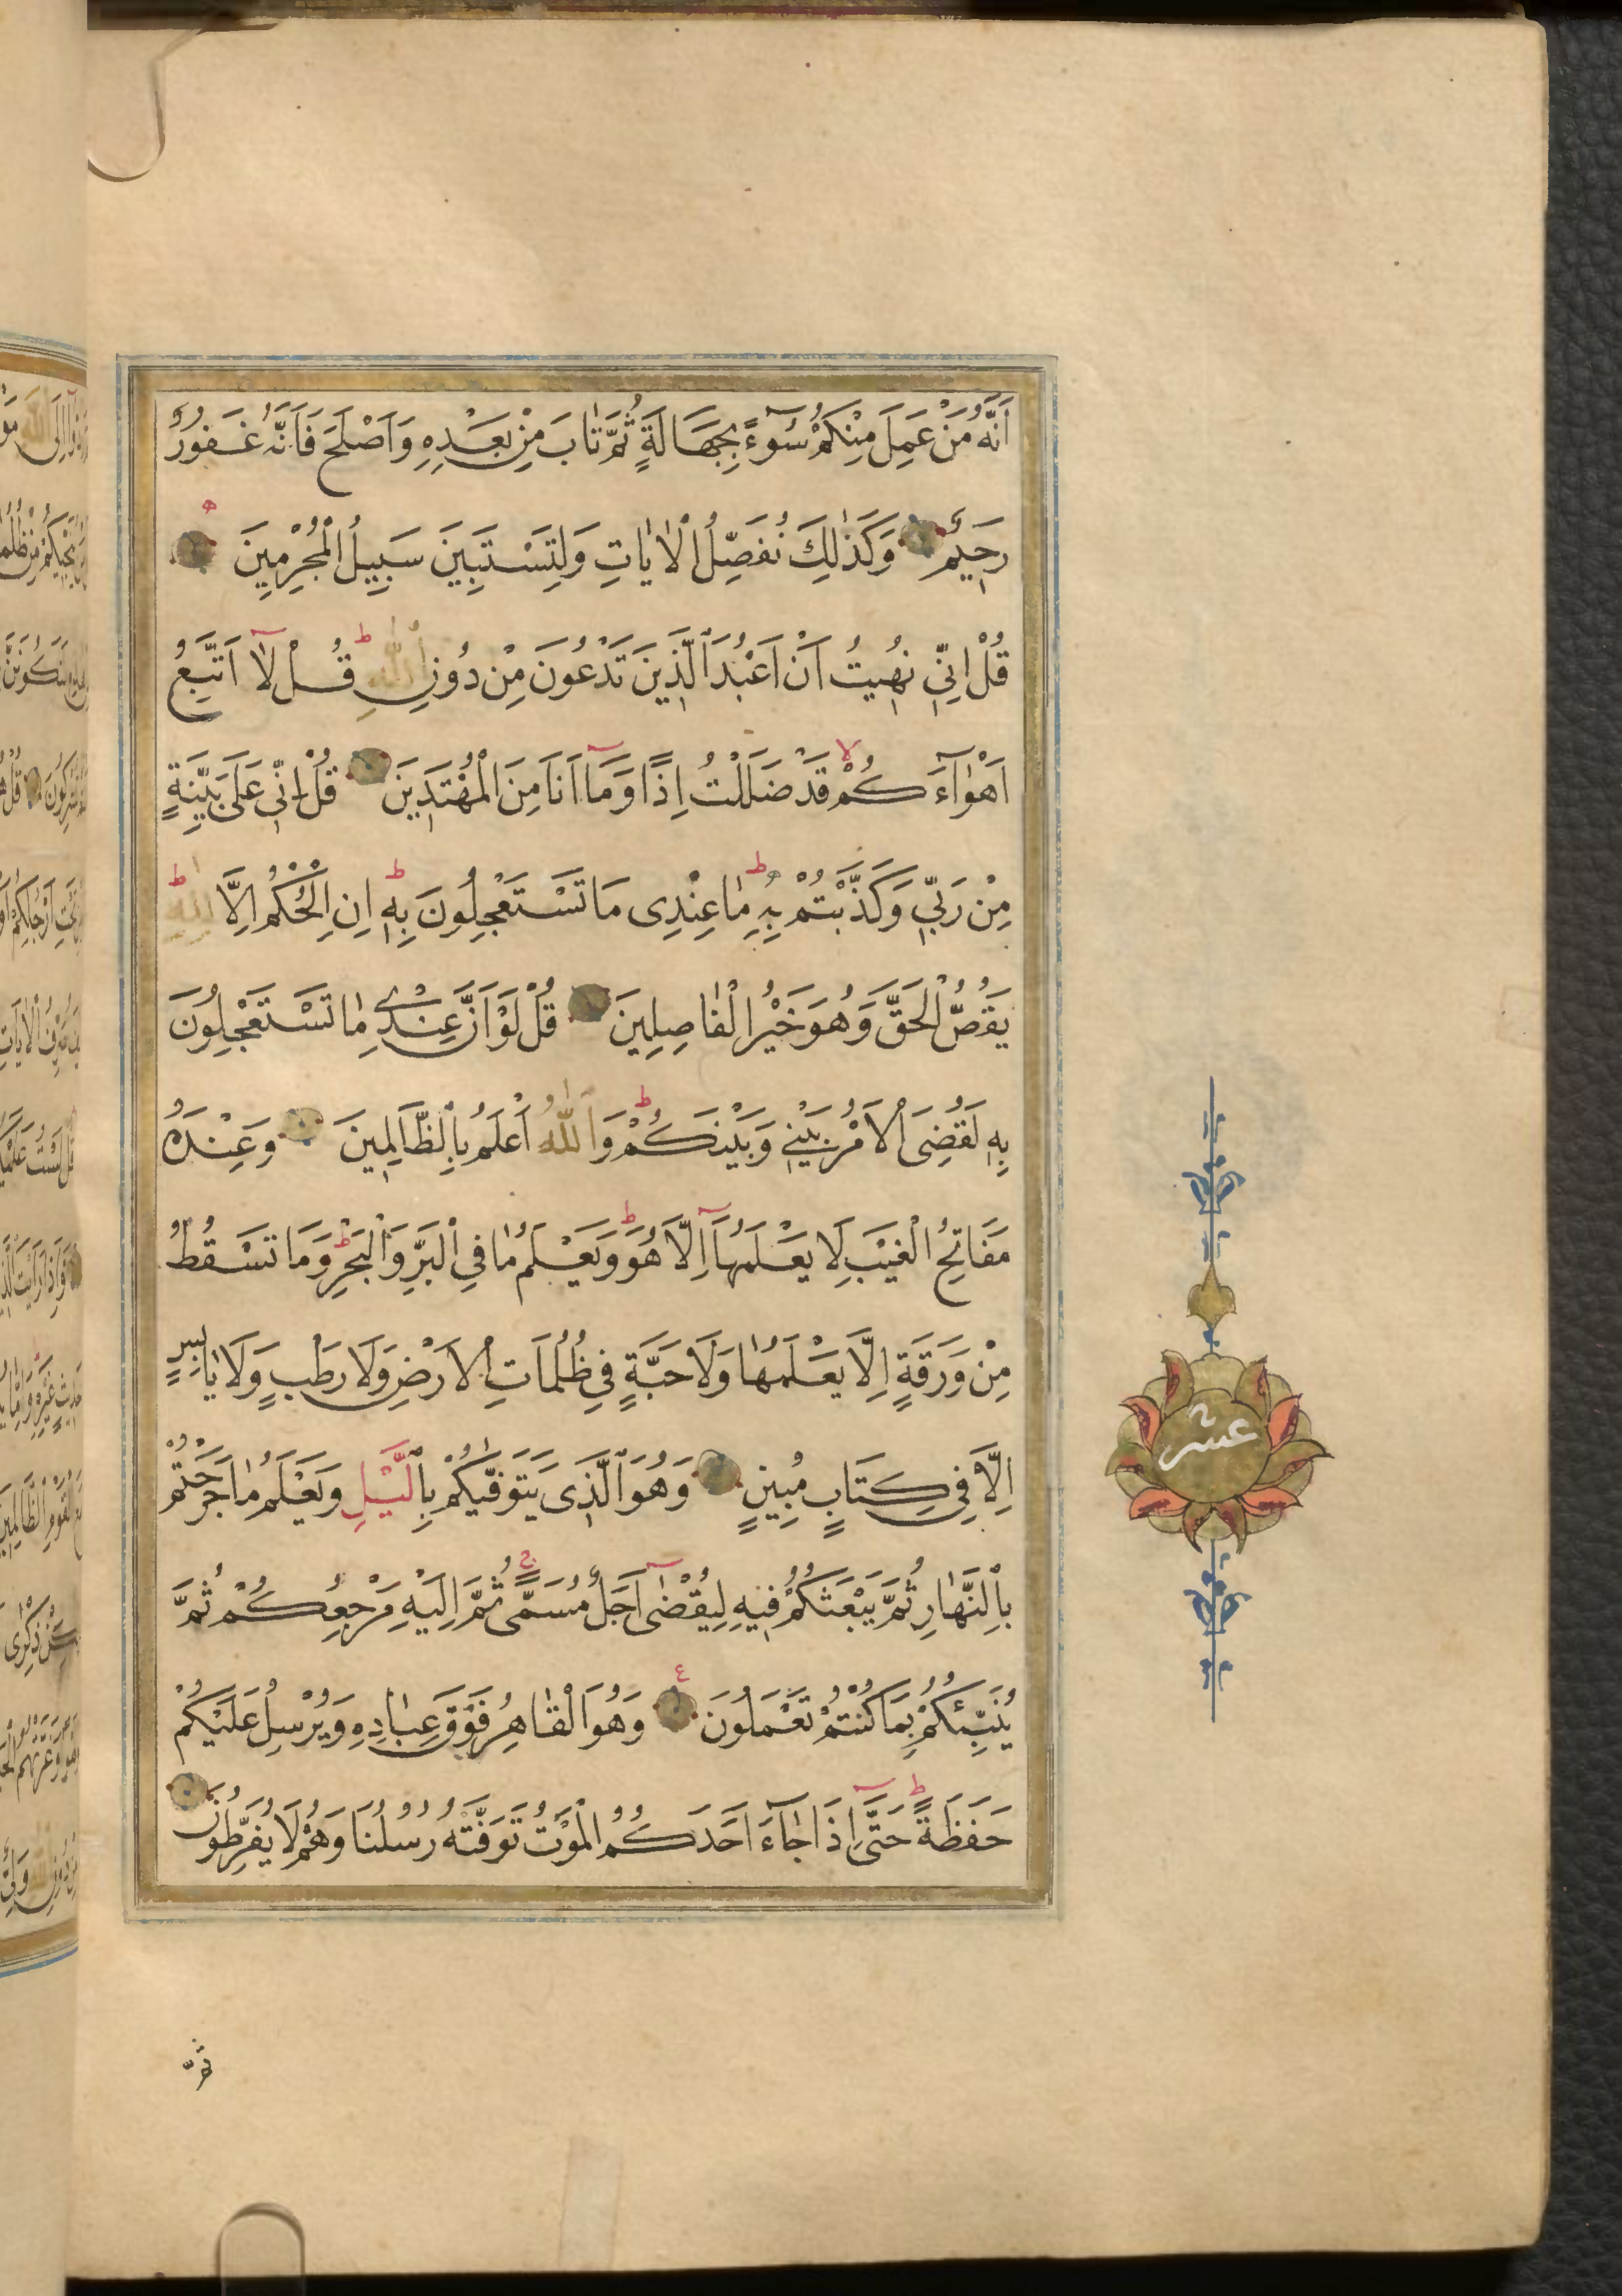 اَنَّهُ مَنْ عَمِلَ مِنْكُمْ سُوءً بِجَهَالَةٍ ثُمَّ تَابَ مِنْ بَعْدِهِ وَاَصْلَحَ فَاَنَّهُ غَفُورٌ
رَحِيمٌ وَكَذٰلِكَ نُفَصِّلُ الْاٰيَاتِ وَلِتَسْتَبِينَ سَبِيلُ الْمُجْرِمِينَ
قُلْ اِنِّي نُهِيتُ اَنْ اَعْبُدَ الَّذِينَ تَدْعُونَ مِنْ دُونِ اللّٰهِ قُلْ لَا اَتَّبِعُ
اَهْوَاءَكُمْ قَدْ ضَلَلْتُ اِذًا وَمَا اَنَا مِنَ الْمُهْتَدِينَ قُلْ اِنِّي عَلَى بَيِّنَةٍ
مِنْ رَبِّي وَكَذَّبْتُمْ بِهِ مَا عِنْدِى مَا تَسْتَعْجِلُونَ بِهِ اِنِ الْحُكْمُ اِلَّا لِلّٰهِ
يَقُصُّ الْحَقَّ وَهُوَ خَيْرُ الْفَاصِلِينَ قُلْ لَوْ اَنَّ عِنْدِي مَا تَسْتَعْجِلُونَ
بِهِ لَقُضِىَ الْاَمْرُ بَيْنِي وَبَيْنَكُمْ وَاللّٰهُ اَعْلَمُ بِالظَّالِمِينَ وَعِنْدَهُ
مَفَاتِحُ الْغَيْبِ لَا يَعْلَمُهَا اِلَّا هُوَ وَيَعْلَمُ مَا فِي الْبَرِّ وَالْبَحْرِ وَمَا تَسْقُطُ
مِنْ وَرَقَةٍ اِلَّا يَعْلَمُهَا وَلَا حَبَّةٍ فِي ظُلُمَاتِ الْاَرْضِ وَلَا رَطْبٍ وَلَا يَابِسٍ
اِلَّا فِي كِتَابٍ مُبِينٍ وَهُوَ الَّذِى يَتَوَفّٰيكُمْ بِالَّيْلِ وَيَعْلَمُ مَا جَرَحْتُمْ
بِالنَّهَارِ ثُمَّ يَبْعَثُكُمْ فِيهِ لِيُقْضٰى اَجَلٌ مُسَمًّى ثُمَّ اِلَيْهِ مَرْجِعُكُمْ ثُمَّ
يُنَبِّئُكُمْ بِمَا كُنْتُمْ تَعْمَلُونَ وَهُوَ الْقَاهِرُ فَوْقَ عِبَادِهِ وَيُرْسِلُ عَلَيْكُمْ
حَفَظَةً حَتَّى اِذَا جَاءَ اَحَدَكُمُ الْمَوْتُ تَوَفَّتْهُ رُسُلُنَا وَهُمْ لَا يُفَرِّطُونَ
عشر
ثمّ